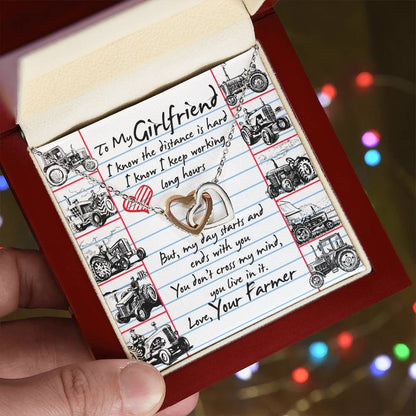 To My Girlfriend
I know the distance is hard
I know I keep working
long hours
But, my day starts and
ends with you
You don't cross my mind,
you live in it.
Love, Your Farmer